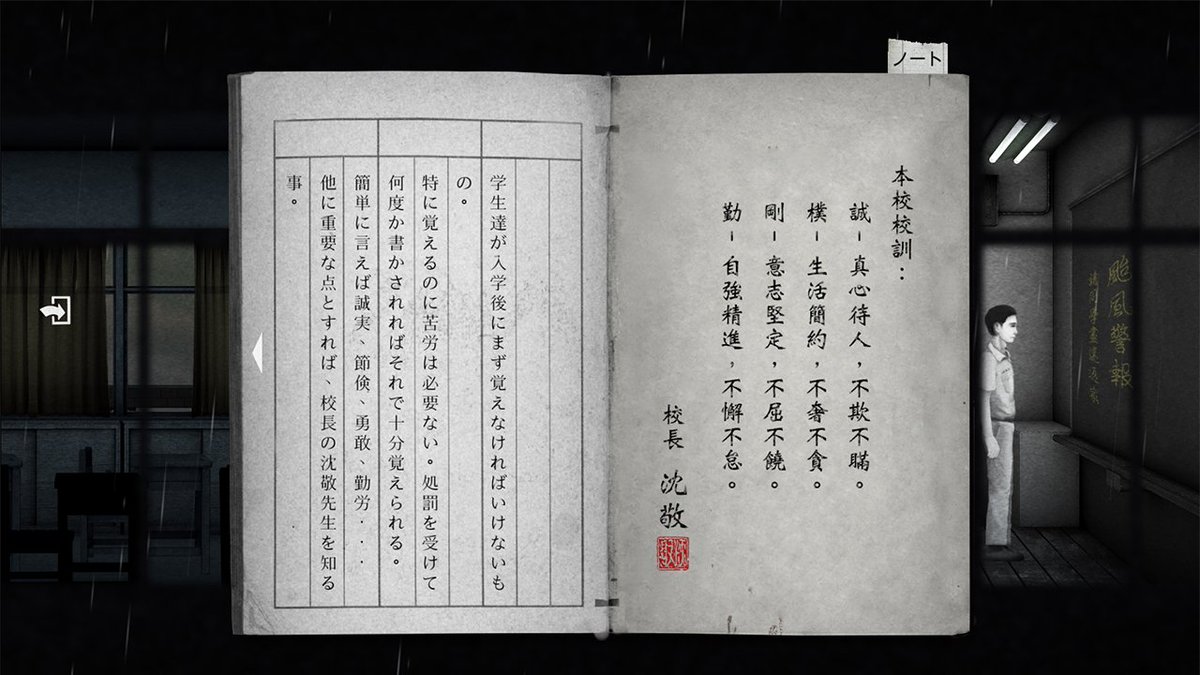 ノート
本校校訓：
誠－真心待人，不欺不瞞。
樸－生活簡約，不奢不貪。
剛－意志堅定，不屈不饒。
勤－自強精進，不懈不怠。
校長 沈敬
学生達が入学後にまず覚えなければいけないも
の。
特に覚えるのに苦労は必要ない。処罰を受けて
何度か書かされればそれで十分覚えられる。
簡単に言えば誠実、節倹、勇敢、勤労．．．
他に重要な点とすれば、校長の沈敬先生を知る
事。
颱風警報